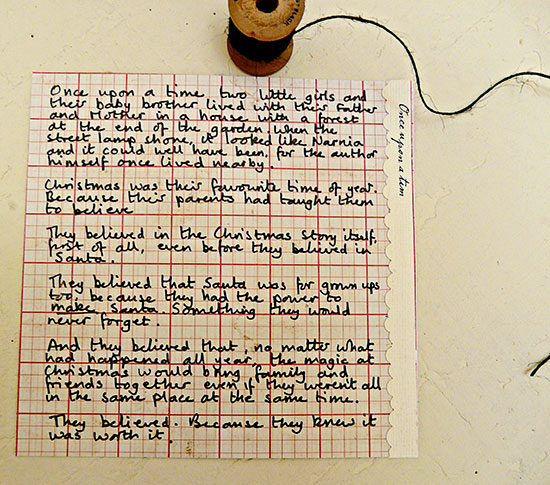 Once upon a time two little girls and
their baby brother lived with their Father
and Mother in a house with a forest
at the end of the garden. When the
street lamp shone, it looked like Narnia
and it could well have been, for the author
himself once lived nearby.
Christmas was their favourite time of year.
Because their parents had taught them
to believe
They believed in the Christmas Story itself,
first of all, even before they believed in
Santa.
They believed that Santa was for grown ups
too, because they had the power to
make Santa. Something they would
never forget.
And they believed that, no matter what
had happened all year, the magic at
Christmas would bring family and
friends together even if they weren't all
in the same place at the same time.
They believed. Because they knew it
was worth it.
Once upon a tim